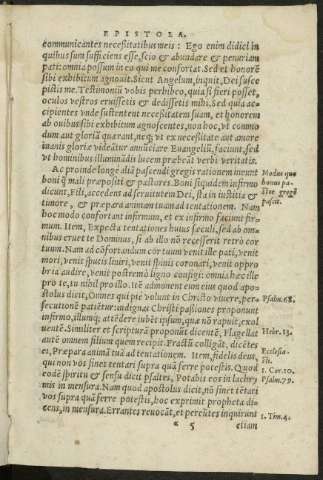 EPISTOLA.
communicantes necessitatibus meis: Ego enim didici in
quibus sum sufficiens esse, scio & abundare & penuriam
pati: omnia possum in eo qui me confortat. Sed et honorē
sibi exhibitum agnouit. Sicut Angelum, inquit, Dei susce
pistis me. Testimoniū vobis perhibeo, quia si fieri posset,
oculos vestros eruissetis & dedissetis mihi. Sed quia ac
cipientes vnde sustentent necessitatem suam, et honorem
ab ouibus sibi exhibitum agnoscentes, non hoc, vt commo
dum aut gloriā quærant, neq; vt ex necessitate aut amore
inanis gloriæ videātur annūciare Euangeliū, faciunt, sed
vt hominibus illuminādis lucem præbeāt verbi veritatis.
Ac proinde longè alià pascendi gregis rationem ineunt
boni q̄ mali præpositi & pastores. Boni siquidem infirmo
dicunt, Fili, accedens ad seruitutem Dei, sta in iustitia &
timore, & præpara animam tuam ad tentationem. Nam
hoc modo confortant infirmum, et ex infirmo faciunt fir-
mum. Item, Expecta tentationes huius sæculi, sed ab om-
nibus eruet te Dominus, si ab illo nō recesserit retrò cor
tuum. Nam ad cōfortandum cor tuum venit ille pati, venit
mori, venit sputis liniri, venit spinis coronari, venit oppro
bria audire, venit postremò ligno configi: omnia hæc ille
pro te, tu nihil pro illo. Itē admonent eum eius quod apo-
stolus dicit, Omnes qui piè volunt in Christo viuere, per-
secutionē patiētur: indignaē Christi passiones proponunt
infirmo, illumq; attēdere iubēt ipsum, quæ nō rapuit, exol
uentē. Similiter et scripturā proponūt dicentē, Flagellat
autē omnem filium quem recipit. Fractū colligāt, dicētes
ei, Præpara animā tuā ad tentationem. Item, fidelis deus,
qui non vos sinet tentari supra quā ferre potestis. Quod
eodē spiritu & sensu dicit psaltes, Potabis eos in lachry
mis in mensura. Nam quod apostolus dicit, nō sinet tētari
vos supra quā ferre potestis, hoc exprimit propheta di
cens, in mensura. Errantes reuocāt, et percūtes inquirunt
* 5 etiam
Modus quo
bonus pa-
stor gregē
pascit.
Psalm. 68.
Hebr. 13.
Ecclesia-
sti.
1. Cor. 10.
Psalm. 79.
1. Tim. 4.